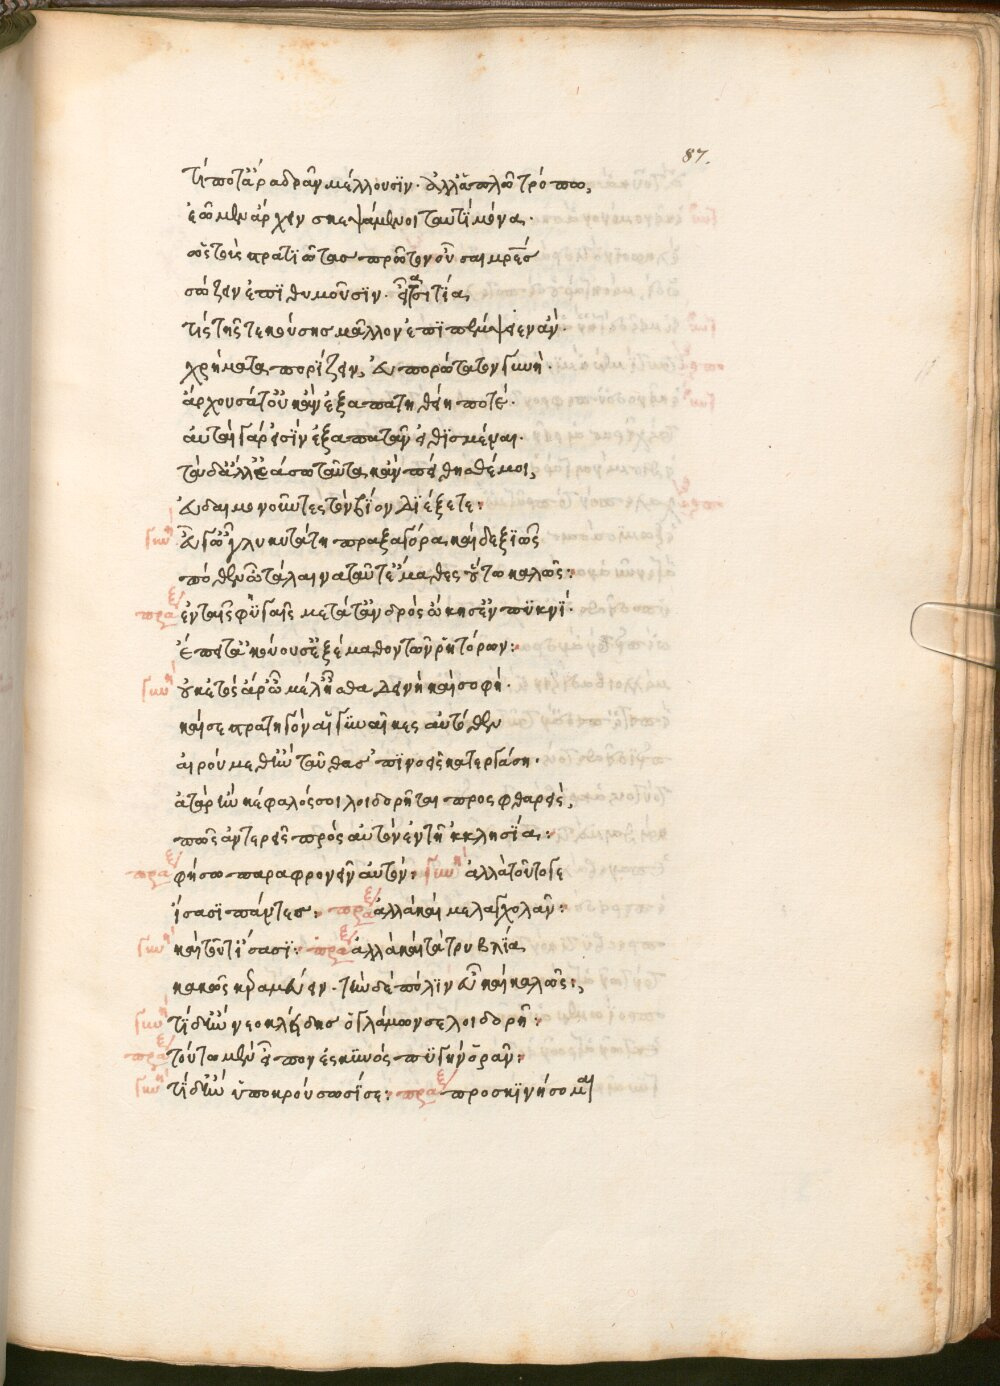 87.
τί ποτ' ἄρα δρᾶν μέλλουσιν· ἀλλ' ἁπλῶ τρόπω,
ἐῶμεν ἄρχειν σκεψάμενοι ταυτὶ μόνα·
ὡς τοὺς στρατιώτας πρῶτον οὖσαι μητέρες
σώζειν ἐπιθυμοῦσιν· εἶτα σιτία
τίς τῆς τεκούσης μᾶλλον ἐπιπέμψειεν ἄν·
χρήματα πορίζειν, εὐπορώτατον γυνή·
ἄρχουσά τ' οὐκ ἂν ἐξαπατηθείη ποτέ·
αὐταὶ γάρ εἰσιν ἐξαπατᾶν εἰθισμέναι·
τὰ δ' ἄλλ' ἐάσω ταῦτα κἂν πείθησθέ μοι,
εὐδαιμονοῦντες τὸν βίον διέξετε:
γυνὴ εὖ γ' ὦ γλυκυτάτη πραξαγόρα, καὶ δεξιῶς
πόθεν ὦ τάλαινα ταῦτ' ἔμαθες οὕτω καλῶς:
πραξ ἐν ταῖς φυγαῖς μετὰ τἀνδρὸς ὤκησ' ἐν πυκνί·
ἔπειτ' ἀκούουσ' ἐξέμαθον τῶν ῥητόρων:
γυνὴ οὐκ ἐτὸς ἄρ' ὦ μέλ' ἦσθα δεινὴ καὶ σοφή·
καί σε στρατηγὸν αἱ γυναῖκες αὐτόθεν
αἱρούμεθ' ἢν ταῦθ' ἃς 'πινοεῖς κατεργάση·
ἀτὰρ ἢν κέφαλός σοι λοιδορῆται προσφθαρείς,
πῶς ἀντερεῖς πρὸς αὐτὸν ἐν τῆ 'κκλησία:
πραξ φήσω παραφρονεῖν αὐτόν: γυνὴ ἀλλὰ τοῦτό γε
ἴσασι πάντες: πραξ ἀλλὰ καὶ μελαγχολᾶν:
γυνὴ καὶ τοῦτ' ἴσασι: πραξ ἀλλὰ καὶ τὰ τρυβλία
κακῶς κεραμεύειν· τὴν δὲ πόλιν εὖ καὶ καλῶς:,
γυνὴ τί δ' ἢν νεοκλείδης ὁ γλάμων σε λοιδορῆ:
πραξ τούτω μὲν εἶπον ἐς κυνὸς πυγὴν ὁρᾶν:
γυνὴ τί δ' ἢν ὑποκρούσωσί σε: πραξ προσκινήσομαι